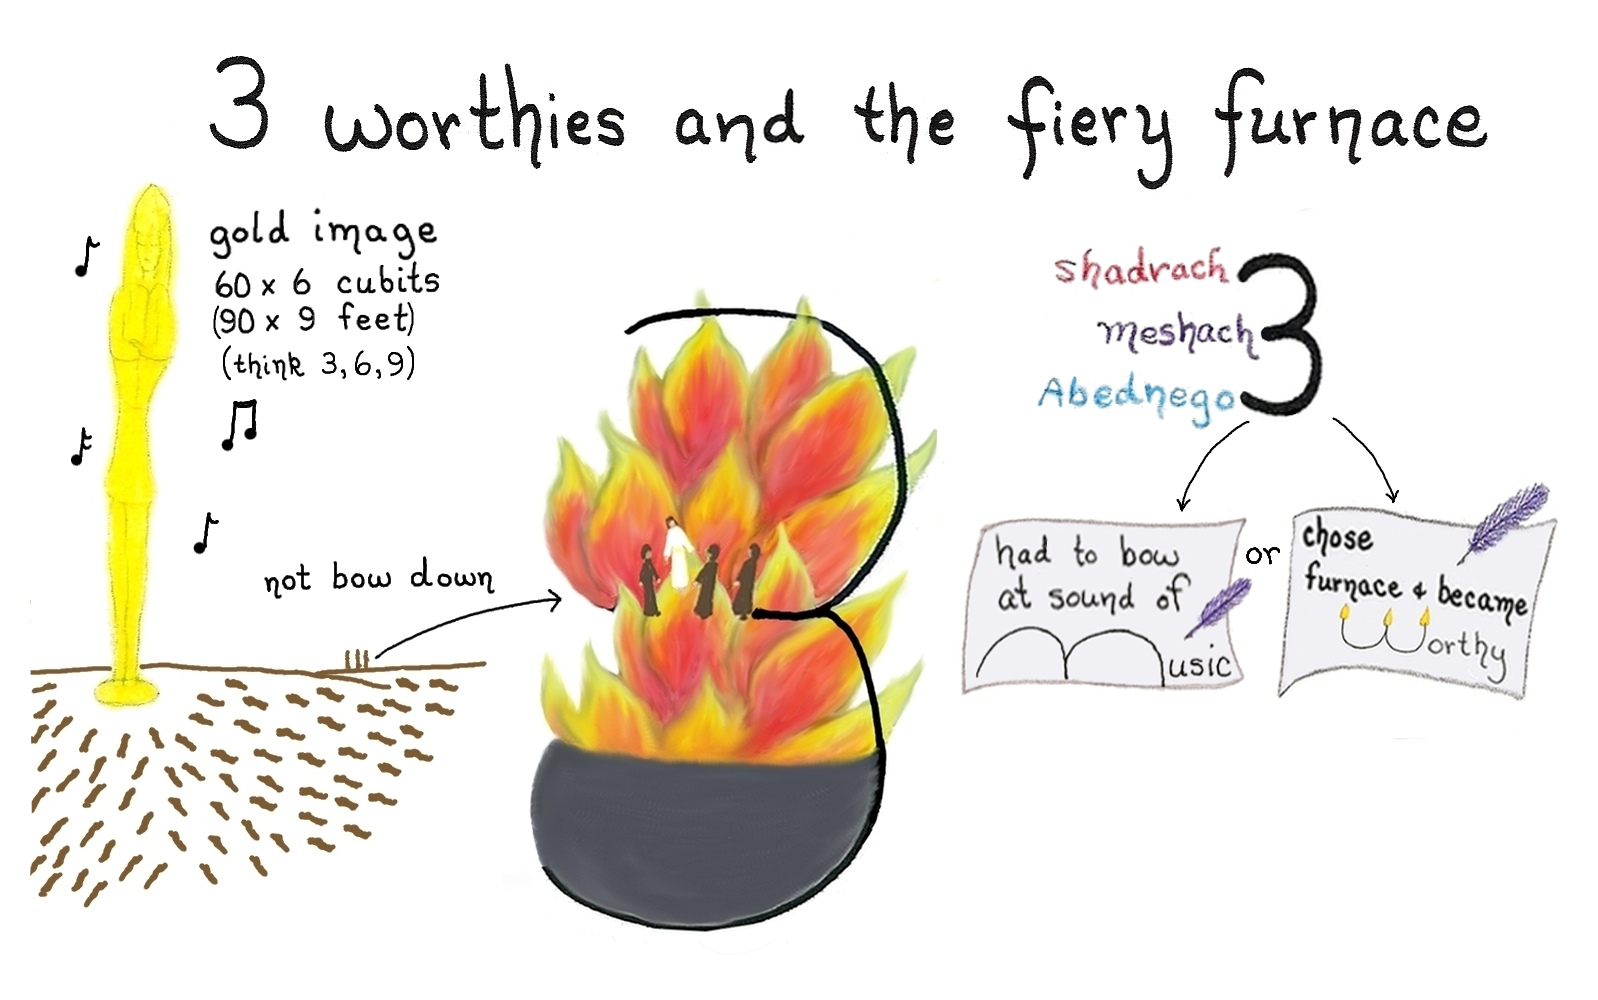 3 worthies and the fiery furnace
gold image
60 x 6 cubits
(90 x 9 feet)
(think 3, 6, 9)
not bow down
shadrach
meshach
Abednego
3
had to bow
at sound of
Music
or
chose
furnace & became
Worthy